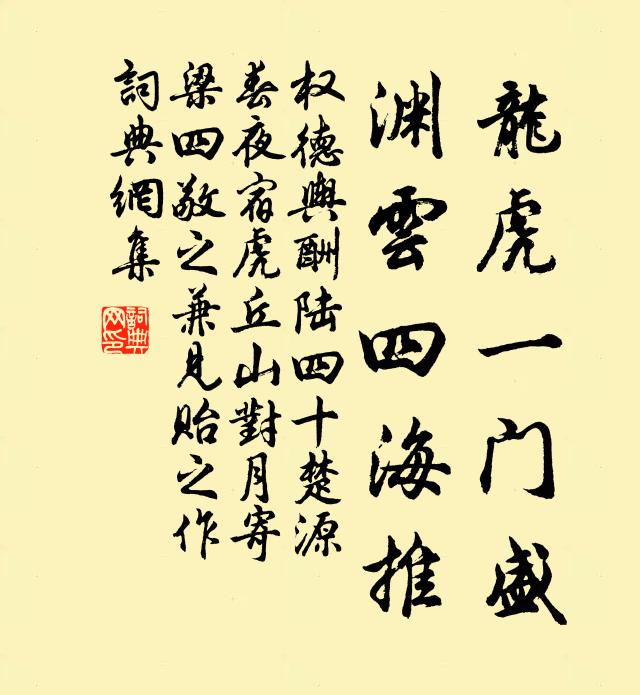 龍虎一门盛
渊雲四海推
权德輿酬陆四十楚源
春夜宿虎丘山對月寄
梁四敬之兼見贻之作
詞典網集
詞典网印